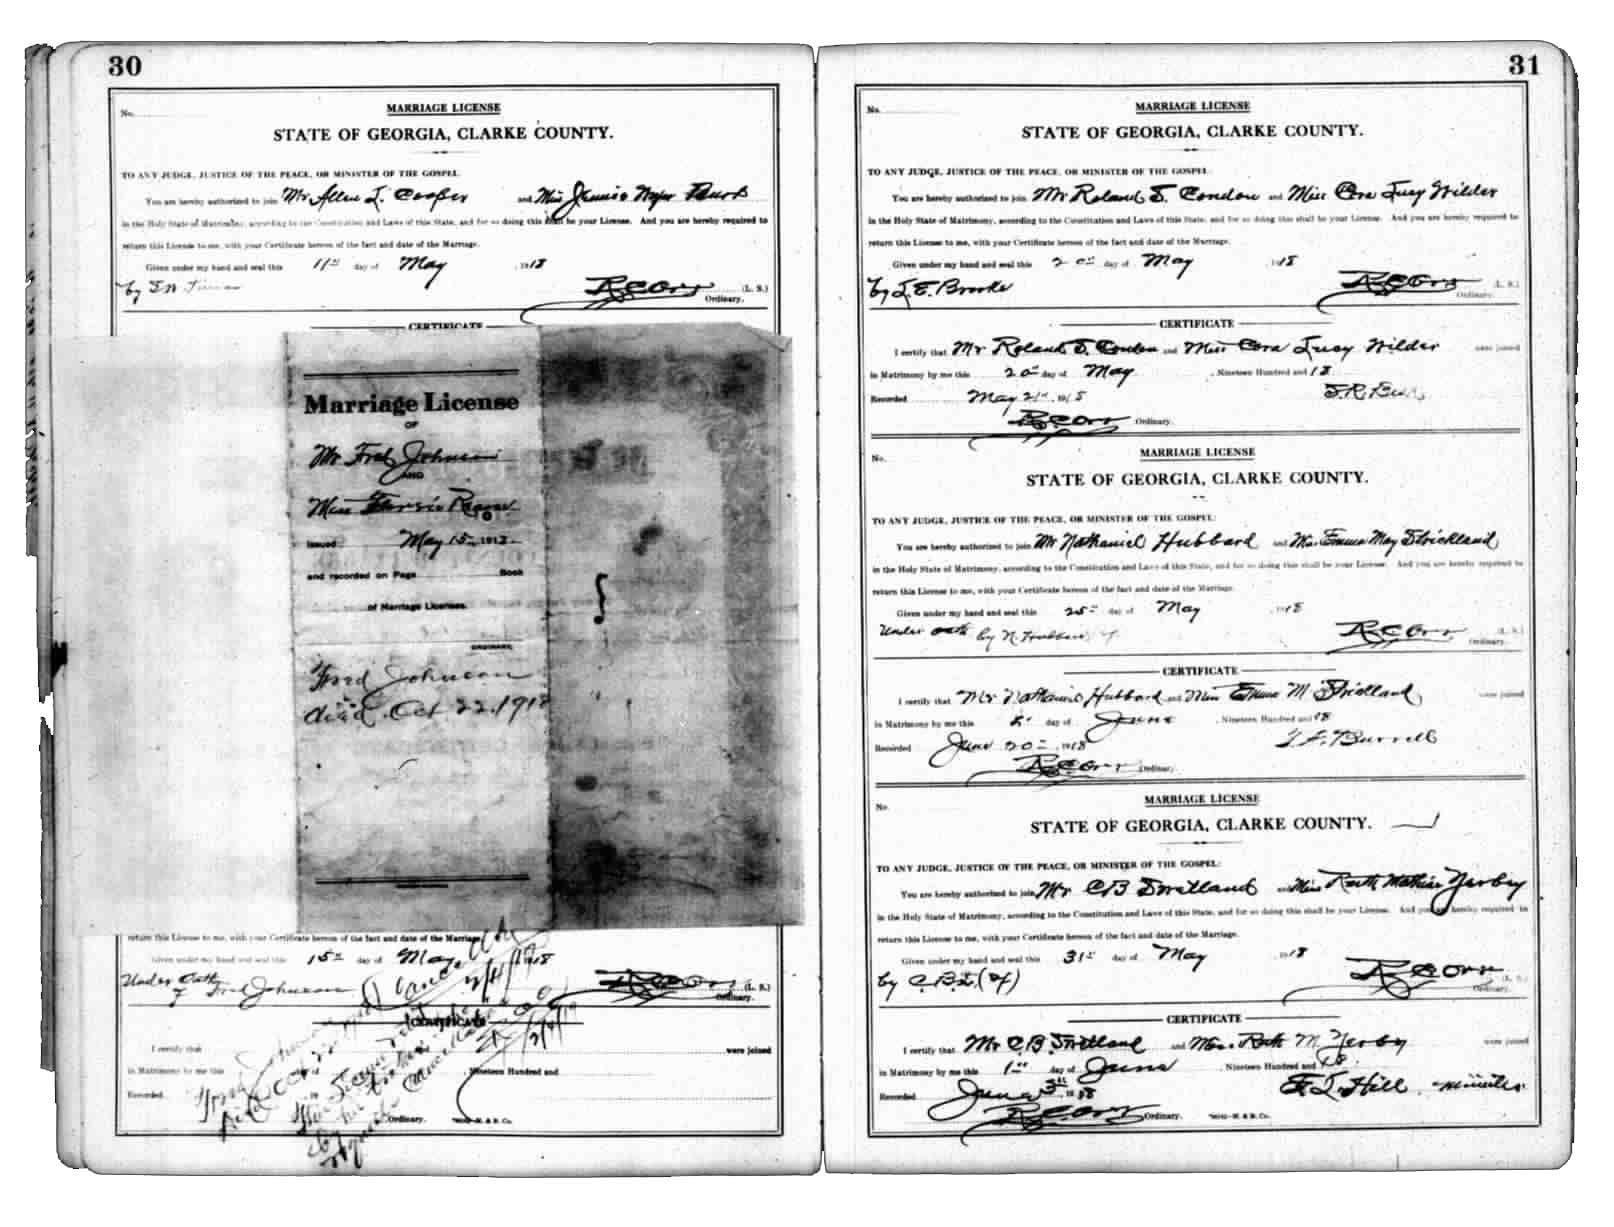 30
No.
MARRIAGE LICENSE
STATE OF GEORGIA, CLARKE COUNTY.
TO ANY JUDGE, JUSTICE OF THE PEACE, OR MINISTER OF THE GOSPEL
You are hereby authorized to join Mr Allen L. Cooper and Miss
in the Holy State of Matrimony, according to the Constitution and Laws of this State, and for so doing this shall be your License. And you are hereby required to
return this License to me, with your Certificate hereon of the fact and date of the Marriage.
Given under my hand and seal this 11th day of May , 1918
by
R C Orr (L. S.)
Ordinary.
CERTIFICATE
Marriage License
OF
Mr Fred Johnson
AND
Miss
Issued May 15 1918
and recorded on Page Book
of Marriage Licenses.
ORDINARY.
Fred Johnson
died Oct 22, 1918
return this License to me, with your Certificate hereon of the fact and date of the Marriage
Given under my hand and seal this 15th day of May 1918
Under Oath
of Fred Johnson
R C Orr (L. S.)
Ordinary.
CERTIFICATE
I certify that were joined
in Matrimony by me this Nineteen Hundred and
Recorded
Ordinary.
31
No.
MARRIAGE LICENSE
STATE OF GEORGIA, CLARKE COUNTY.
TO ANY JUDGE, JUSTICE OF THE PEACE, OR MINISTER OF THE GOSPEL:
You are hereby authorized to join Mr Roland S. Condon and Miss Cora Lucy Wilder
in the Holy State of Matrimony, according to the Constitution and Laws of this State, and for so doing this shall be your License. And you are hereby required to
return this License to me, with your Certificate hereon of the fact and date of the Marriage.
Given under my hand and seal this 20th day of May 1918
by L. E. Brooks
R C Orr (L. S.)
Ordinary.
CERTIFICATE
I certify that Mr Roland S. Condon and Miss Cora Lucy Wilder were joined
in Matrimony by me this 20th day of May , Nineteen Hundred and 18
Recorded May 21st, 1918
R C Orr Ordinary.
No.
MARRIAGE LICENSE
STATE OF GEORGIA, CLARKE COUNTY.
TO ANY JUDGE, JUSTICE OF THE PEACE, OR MINISTER OF THE GOSPEL:
You are hereby authorized to join Mr Nathaniel Hubbard and Miss Emma May Strickland
in the Holy State of Matrimony, according to the Constitution and Laws of this State, and for so doing this shall be your License. And you are hereby required to
return this License to me, with your Certificate hereon of the fact and date of the Marriage.
Given under my hand and seal this 25th day of May 1918
Under oath by N. Hubbard
R C Orr (L. S.)
Ordinary.
CERTIFICATE
I certify that Mr Nathaniel Hubbard and Miss Emma M Strickland were joined
in Matrimony by me this day of June , Nineteen Hundred and 18
Recorded June 20th 1918
Burrell
R C Orr Ordinary.
No.
MARRIAGE LICENSE
STATE OF GEORGIA, CLARKE COUNTY.
TO ANY JUDGE, JUSTICE OF THE PEACE, OR MINISTER OF THE GOSPEL:
You are hereby authorized to join Mr C B Sweatland and Miss Ruth Mathis Yerby
in the Holy State of Matrimony, according to the Constitution and Laws of this State, and for so doing this shall be your License. And you are hereby required to
return this License to me, with your Certificate hereon of the fact and date of the Marriage.
Given under my hand and seal this 31st day of May , 1918
by C. B.
R C Orr (L. S.)
Ordinary.
CERTIFICATE
I certify that Mr C. B. Sweatland and Miss Ruth M. Yerby were joined
in Matrimony by me this 1st day of June , Nineteen Hundred and 18
Recorded June 3rd, 1918
Hill minister
R C Orr Ordinary.